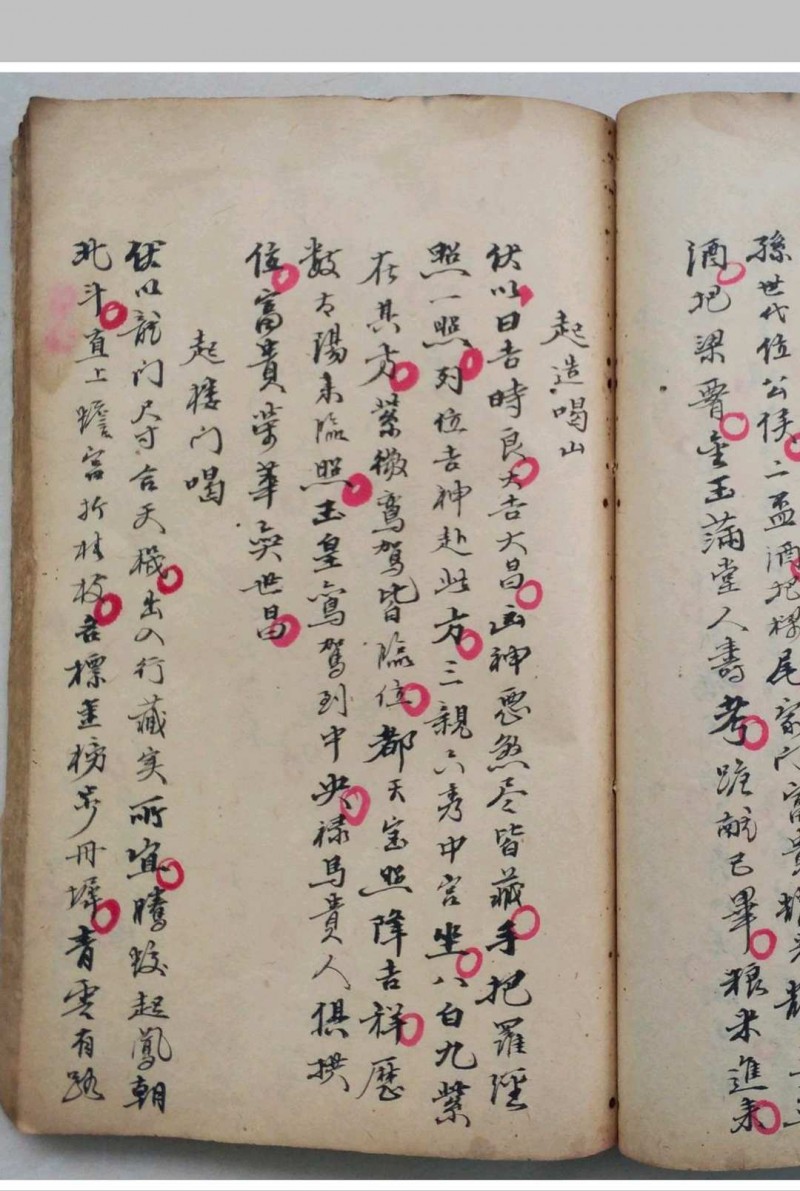 孫世代位公侯二盃酒把樑尾家门富貴
酒把梁金玉滿堂人壽考已畢粮米進来
起造喝山
伏以日吉時良大吉大昌凶神惡煞尽皆藏手把羅經
照一照列位吉神赴此方三親六秀中宫坐八白九紫
在其方紫微鸾駕皆臨位都天宝照降吉祥歷
数太陽来臨照玉皇鸾駕到中央禄馬貴人俱拱
位富貴荣華奕世昌
起楼门喝
伏以龍门尺寸合天機出入行藏实所宜騰蛟起鳳朝
北斗直上蟾宫折桂枝名標金榜步丹墀青雲有路